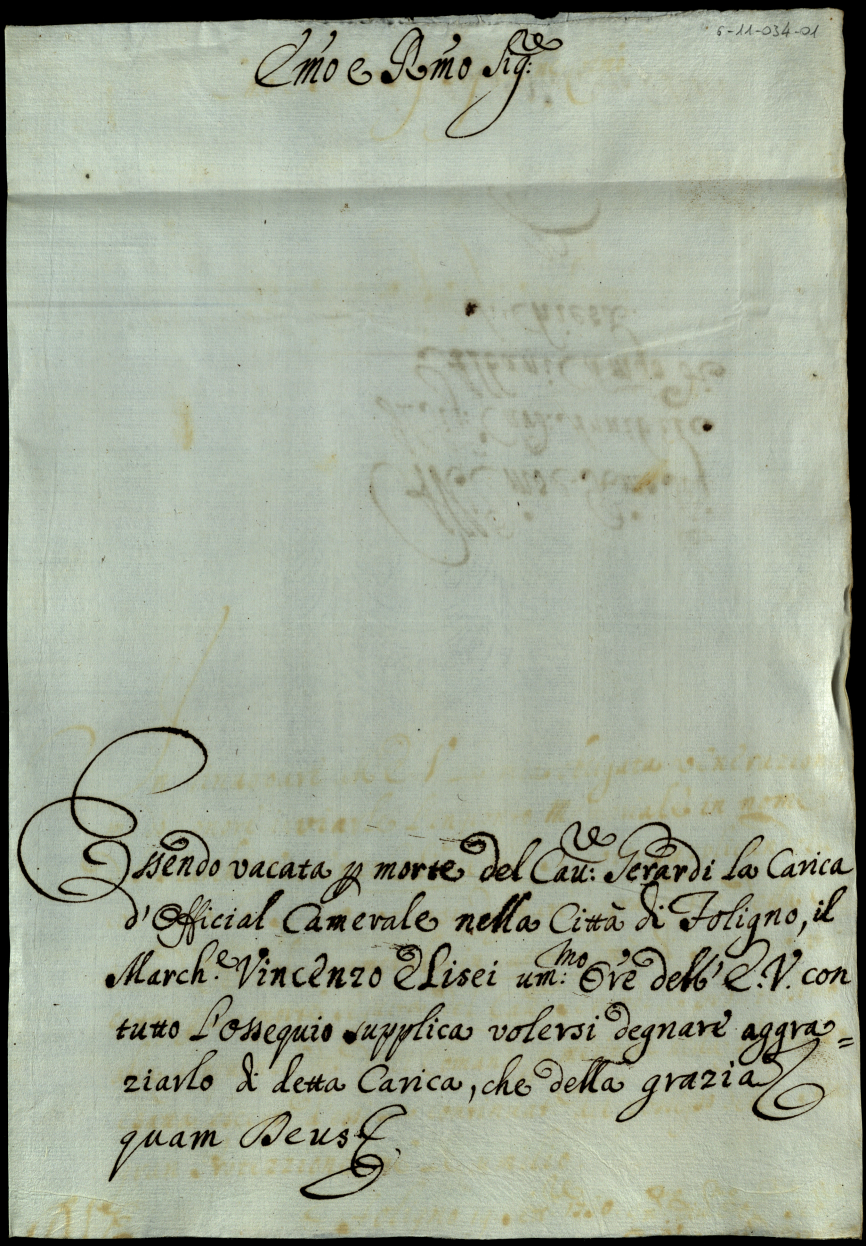 6-11-034-01
Em̃o e Rm̃o Sig.re
Essendo vacata p morte del Cau.re: Gerardi la Carica
d'Official Camerale nella Città di Foligno, il
March.e Vincenzo Elisei um.mo: Ore dell' E.V. con
tutto l'ossequio supplica volersi degnare aggra=
ziarlo di detta Carica, che della grazia
quam Deus